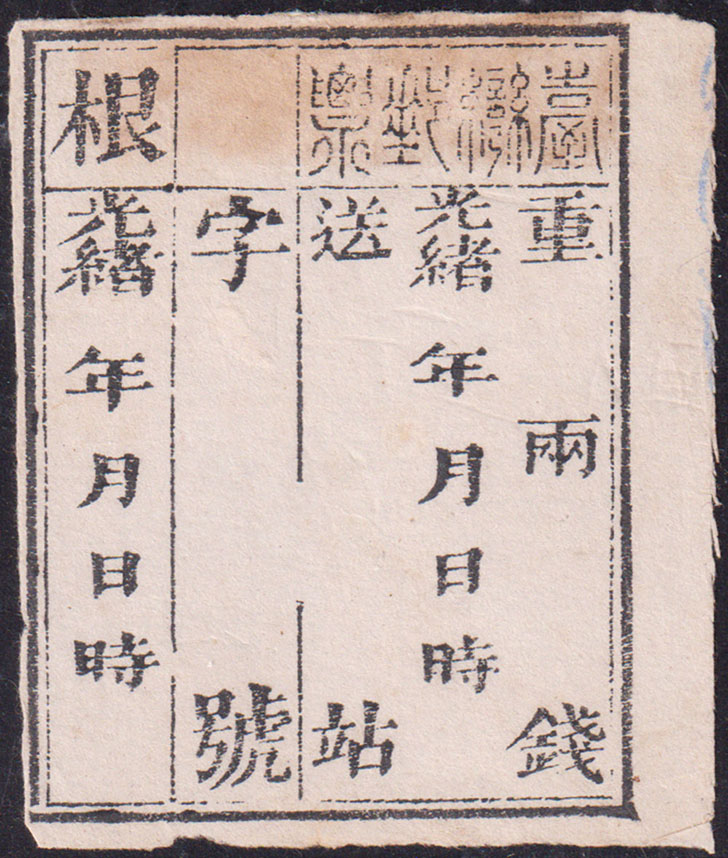 臺灣郵票
重兩錢
光緒年月日時
送站
字號
根
光緒年月日時